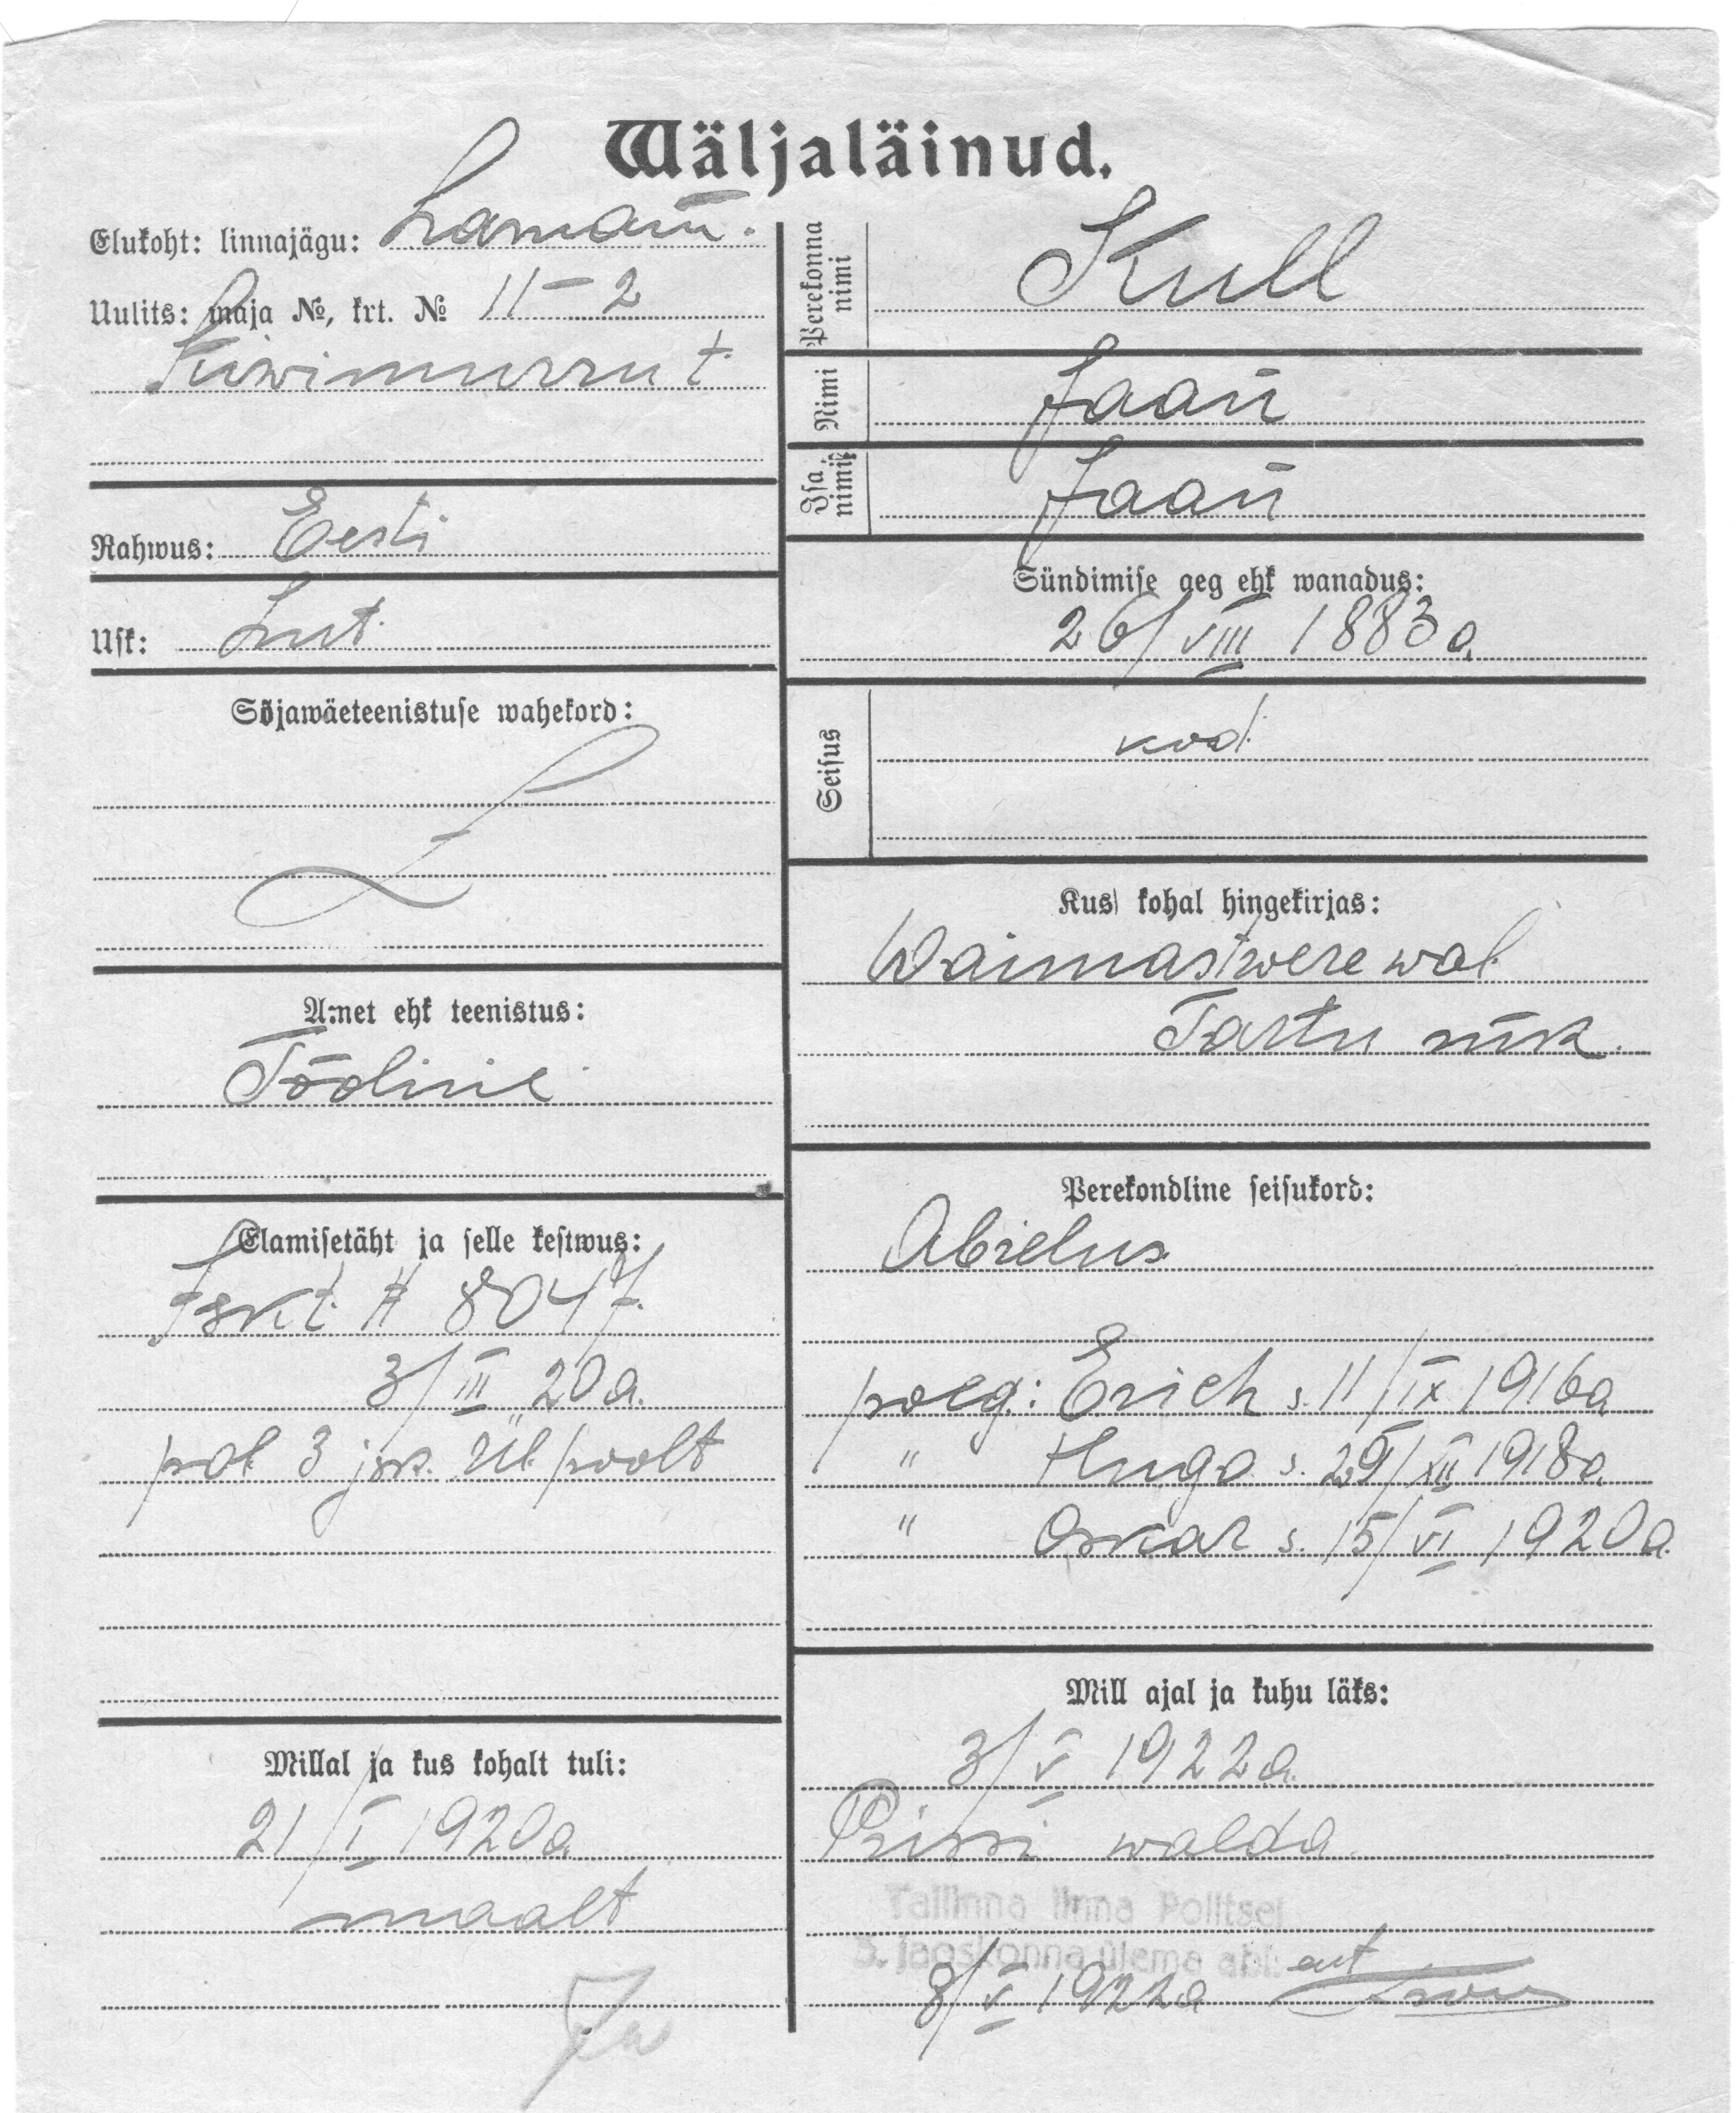 Wäljaläinud.
Elukoht: linnajägu: Lasnam.
Uulits: maja №, krt. № 11 – 2
Kiwimurru t.
Rahwus: Eesti
Usk: Lut.
Sõjawäeteenistuse wahekord:
Amet ehk teenistus:
Tööline
Elamisetäht ja selle kestwus:
Iskt # 8047.
3/III 20 a.
pol. 3 jsk. Ül. poolt
Millal ja kus kohalt tuli:
21/I 1920 a
maalt
Perekonna nimi
Kull
Nimi
Jaan
Isa nimi
Jaan
Sündimise aeg ehk wanadus:
26/VIII 1883 a.
Seisus
kod.
Kus kohal hingekirjas:
Waimastwere wal.
Tartu mk.
Perekondline seisukord:
Abielus
poeg: Erich s. 11/IX 1916 a
" Hugo s. 29/XII 1918 a.
" Oskar s. 15/VI 1920 a.
Mill ajal ja kuhu läks:
3/V 1922 a.
Prissi walda
Tallinna linna Politsei
3. jaoskonna ülema abi:
8/V 1922 a